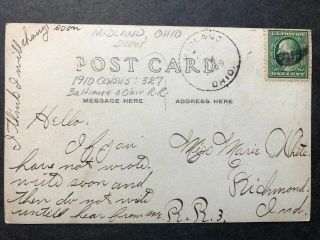 I think I will change soon
MIDLAND, OHIO
DEPOT
OHIO
U.S. POSTAGE
POST CARD
1910 CENSUS: 327
Baltimore & Ohio R.R
MESSAGE HERE
ADDRESS HERE
Hello.
If you
have not wrote
write soon and
Then do not write
untill hear from me
Miss Marie White
Richmond
Ind.
R.R.3.